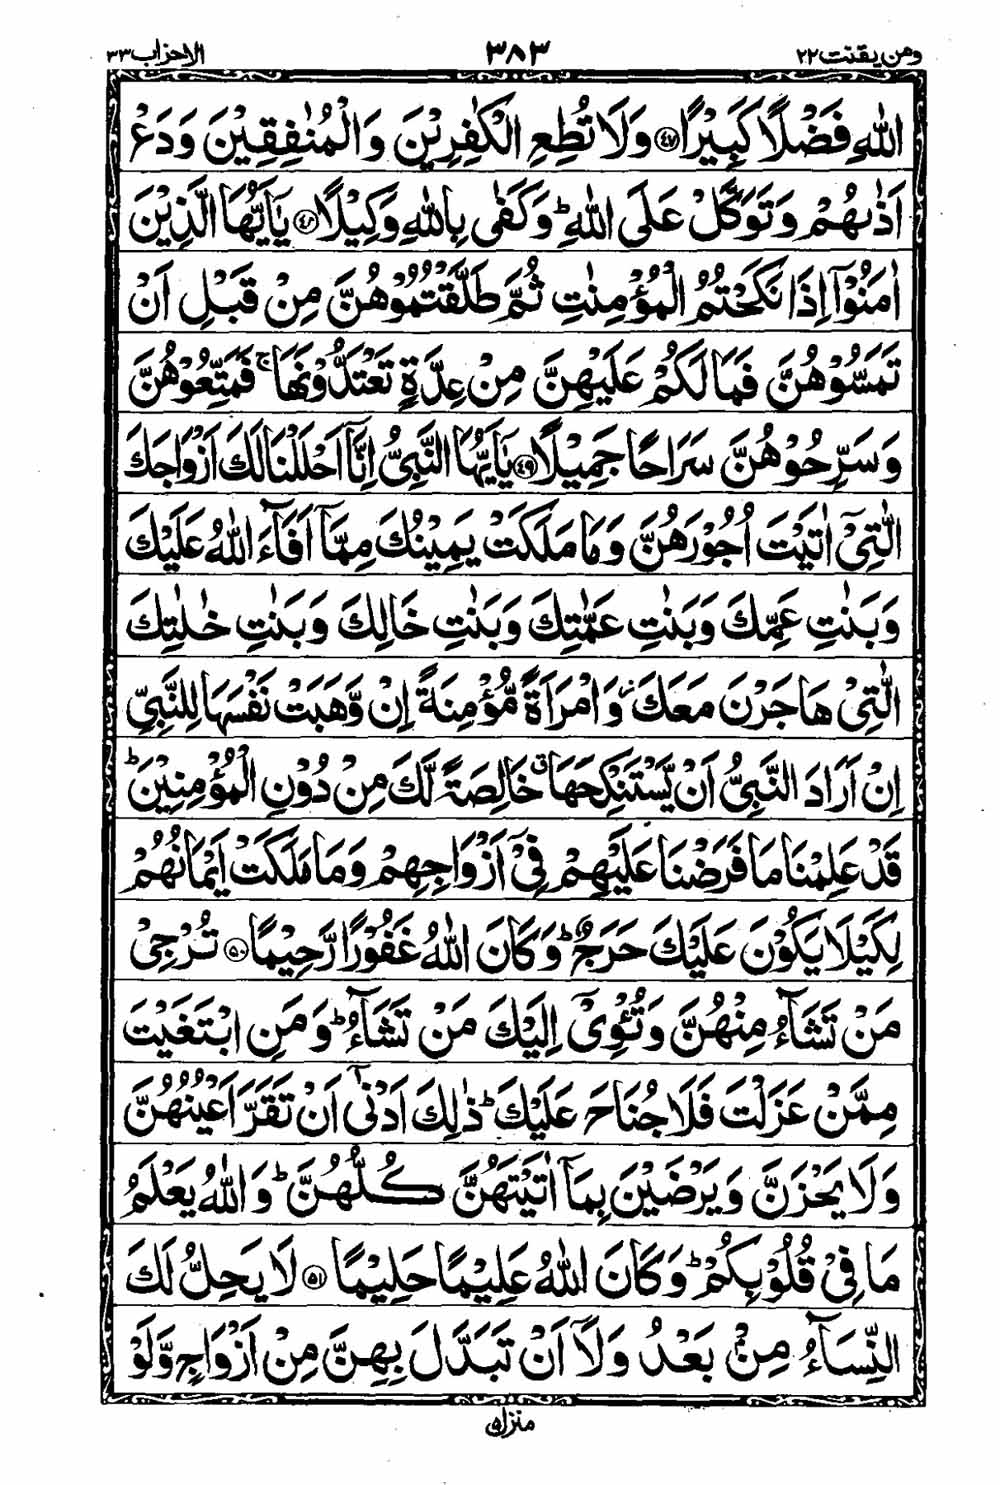 ومن يقنت ٢٢ ٣٨٣ الاحزاب ٣٣
اللّٰهِ فَضْلًا كَبِيْرًا ﴿٤٧﴾ وَلَا تُطِعِ الْكٰفِرِيْنَ وَالْمُنٰفِقِيْنَ وَدَعْ
اَذٰىهُمْ وَتَوَكَّلْ عَلَى اللّٰهِ ؕ وَكَفٰى بِاللّٰهِ وَكِيْلًا ﴿٤٨﴾ يٰۤاَيُّهَا الَّذِيْنَ
اٰمَنُوْۤا اِذَا نَكَحْتُمُ الْمُؤْمِنٰتِ ثُمَّ طَلَّقْتُمُوْهُنَّ مِنْ قَبْلِ اَنْ
تَمَسُّوْهُنَّ فَمَا لَكُمْ عَلَيْهِنَّ مِنْ عِدَّةٍ تَعْتَدُّوْنَهَا ۚ فَمَتِّعُوْهُنَّ
وَسَرِّحُوْهُنَّ سَرَاحًا جَمِيْلًا ﴿٤٩﴾ يٰۤاَيُّهَا النَّبِيُّ اِنَّاۤ اَحْلَلْنَا لَكَ اَزْوَاجَكَ
الّٰتِيْۤ اٰتَيْتَ اُجُوْرَهُنَّ وَمَا مَلَكَتْ يَمِيْنُكَ مِمَّاۤ اَفَآءَ اللّٰهُ عَلَيْكَ
وَبَنٰتِ عَمِّكَ وَبَنٰتِ عَمّٰتِكَ وَبَنٰتِ خَالِكَ وَبَنٰتِ خٰلٰتِكَ
الّٰتِيْ هَاجَرْنَ مَعَكَ ؗ وَامْرَاَةً مُّؤْمِنَةً اِنْ وَّهَبَتْ نَفْسَهَا لِلنَّبِيِّ
اِنْ اَرَادَ النَّبِيُّ اَنْ يَّسْتَنْكِحَهَا ۗ خَالِصَةً لَّكَ مِنْ دُوْنِ الْمُؤْمِنِيْنَ ؕ
قَدْ عَلِمْنَا مَا فَرَضْنَا عَلَيْهِمْ فِيْۤ اَزْوَاجِهِمْ وَمَا مَلَكَتْ اَيْمَانُهُمْ
لِكَيْلَا يَكُوْنَ عَلَيْكَ حَرَجٌ ؕ وَكَانَ اللّٰهُ غَفُوْرًا رَّحِيْمًا ﴿٥٠﴾ تُرْجِيْ
مَنْ تَشَآءُ مِنْهُنَّ وَتُـْٔوِيْۤ اِلَيْكَ مَنْ تَشَآءُ ؕ وَمَنِ ابْتَغَيْتَ
مِمَّنْ عَزَلْتَ فَلَا جُنَاحَ عَلَيْكَ ؕ ذٰلِكَ اَدْنٰۤى اَنْ تَقَرَّ اَعْيُنُهُنَّ
وَلَا يَحْزَنَّ وَيَرْضَيْنَ بِمَاۤ اٰتَيْتَهُنَّ كُلُّهُنَّ ؕ وَاللّٰهُ يَعْلَمُ
مَا فِيْ قُلُوْبِكُمْ ؕ وَكَانَ اللّٰهُ عَلِيْمًا حَلِيْمًا ﴿٥١﴾ لَا يَحِلُّ لَكَ
النِّسَآءُ مِنْۢ بَعْدُ وَلَاۤ اَنْ تَبَدَّلَ بِهِنَّ مِنْ اَزْوَاجٍ وَّلَوْ
منزل ٥